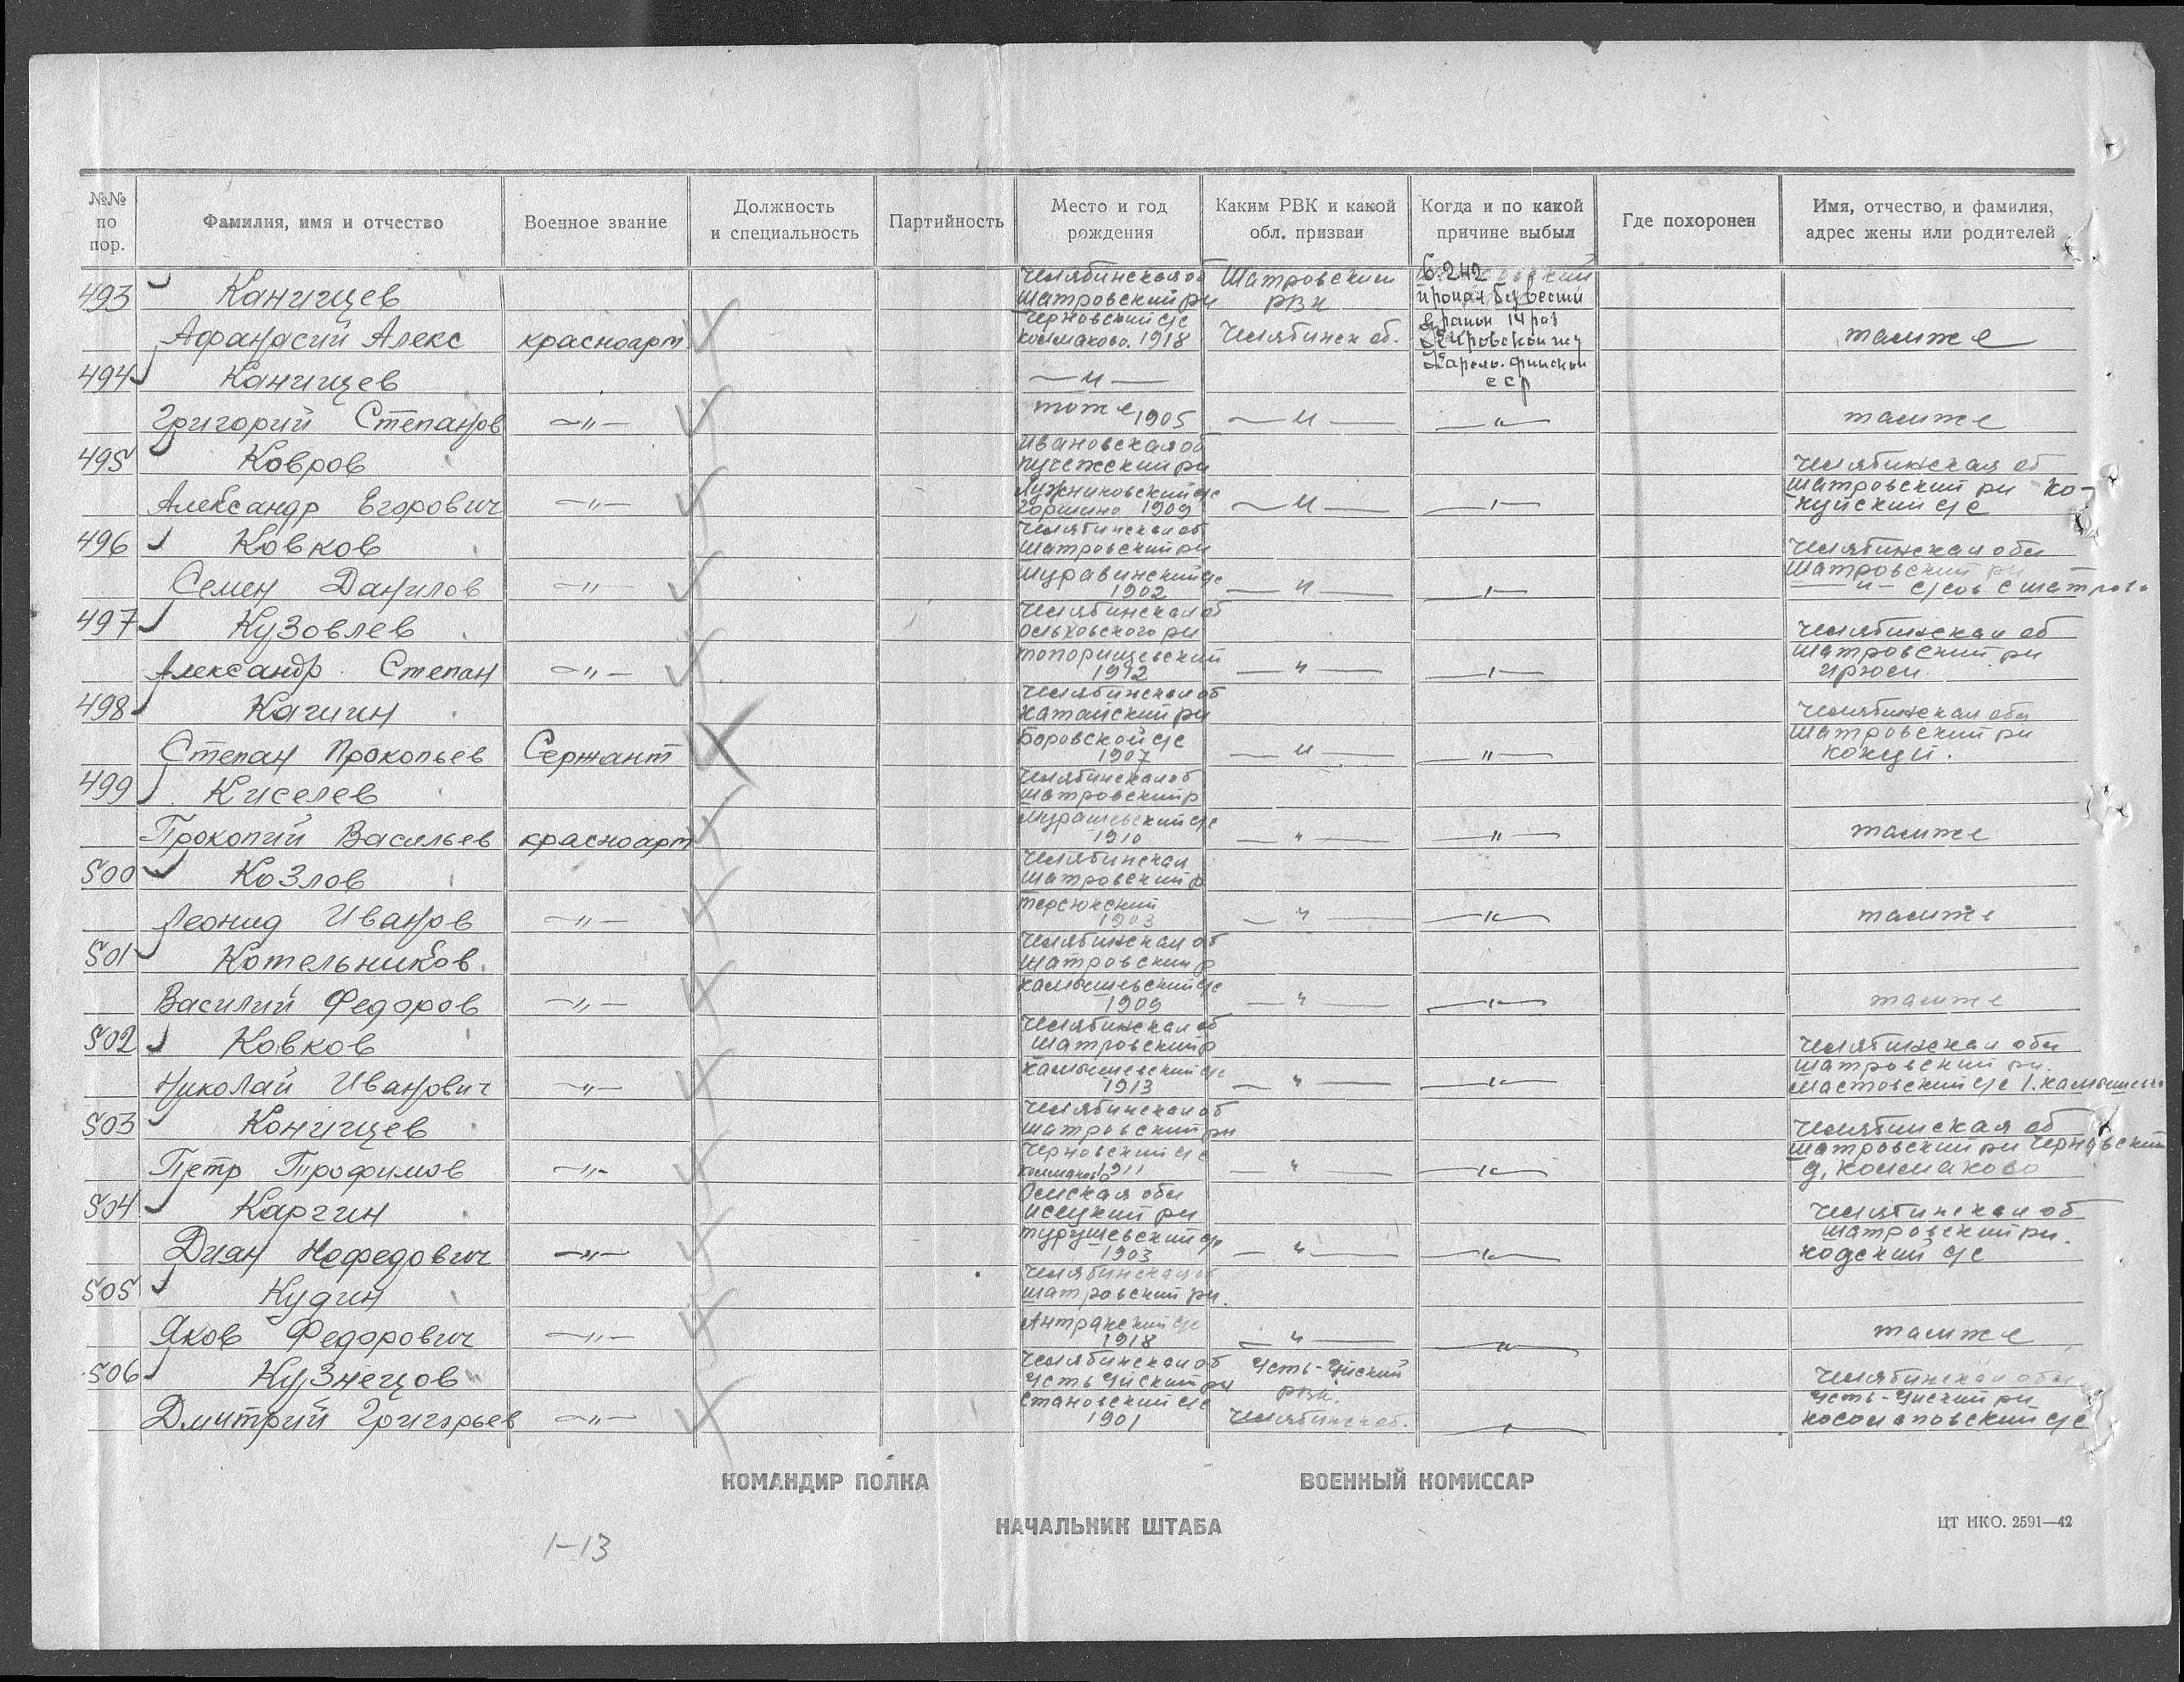 №№ по пор.
Фамилия, имя и отчество
Военное звание
Должность и специальность
Партийность
Место и год рождения
Каким РВК и какой обл. призван
Когда и по какой причине выбыл
Где похоронен
Имя, отчество, и фамилия, адрес жены или родителей
493 Канищев Челябинская об Шатровский РВК 6.2.42
Шатровский рн пропал без вести
Афанасий Алекс красноарм Черновский с/с 1918 Челябинск об. район 14 раз Кировской жд тамже
494 Канищев — " — Карело-финской ССР
Григорий Степанов — " — тоже 1905 — " — — " — тамже
495 Ковров Ивановская об Пучежский рн Челябинская об
Александр Егорович — " — 1909 — " — — " — Шатровский рн Кокуйский с/с
496 Ковков Челябинская об Шатровский рн Челябинская обл
Семен Данилов — " — 1902 — " — — " — Шатровский рн
497 Кузовлев Челябинская об Ольховского рн Челябинская об
Александр Степан — " — Топорищевский 1912 — " — — " — Шатровский рн
498 Качигин Челябинская об Катайский рн Челябинская обл
Степан Прокопьев Сержант Боровской с/с 1907 — " — — " — Шатровский рн Кокуй.
499 Киселев Челябинская об Шатровский р
Прокопий Васильев красноарм 1910 — " — — " — тамже
500 Козлов Челябинская Шатровский р
Леонид Иванов — " — Терсюкский 1903 — " — — " — тамже
501 Котельников Челябинская об Шатровский р
Василий Федоров — " — Камышевский с/с 1909 — " — — " — тамже
502 Ковков Челябинская об Шатровский р Челябинская обл
Николай Иванович — " — Камышевский с/с 1913 — " — — " — Шатровский рн.
503 Конищев Челябинская об Шатровский рн Челябинская об
Петр Трофимов — " — Черновский с/с 1911 — " — — " — Шатровский рн Черновский
504 Каргин Омская обл Исецкий рн Челябинская об
Диан Нефедович — " — 1903 — " — — " — Шатровский рн. Кодский с/с
505 Кудин Челябинская об Шатровский рн.
Яков Федорович — " — 1918 — " — — " — тамже
506 Кузнецов Челябинская об Усть Уйский рн Усть-Уйский РВК. Челябинская обл
Дмитрий Григорьев — " — Становский с/с 1901 Челябинск об. — " — Усть-Уйский рн
КОМАНДИР ПОЛКА
ВОЕННЫЙ КОМИССАР
НАЧАЛЬНИК ШТАБА
ЦТ НКО. 2591—42
1-13